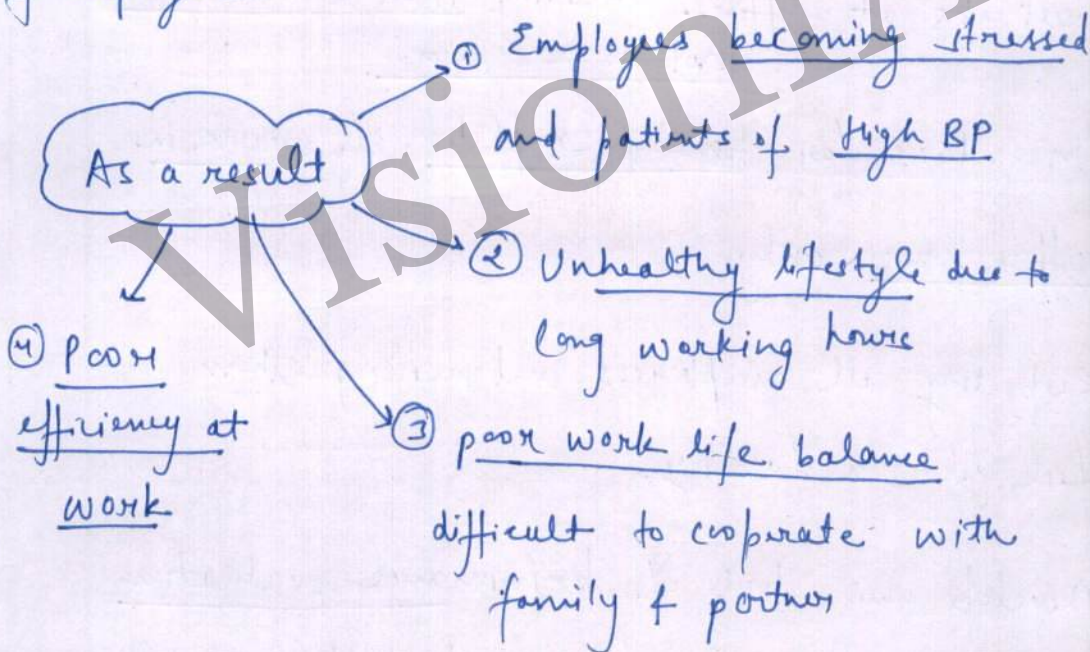 ① Employees becoming stressed
and patients of High BP
As a result
② Unhealthy lifestyle due to
long working hours
③ poor work life balance
difficult to cooperate with
family & partner
④ poor
efficiency at
work
Vision